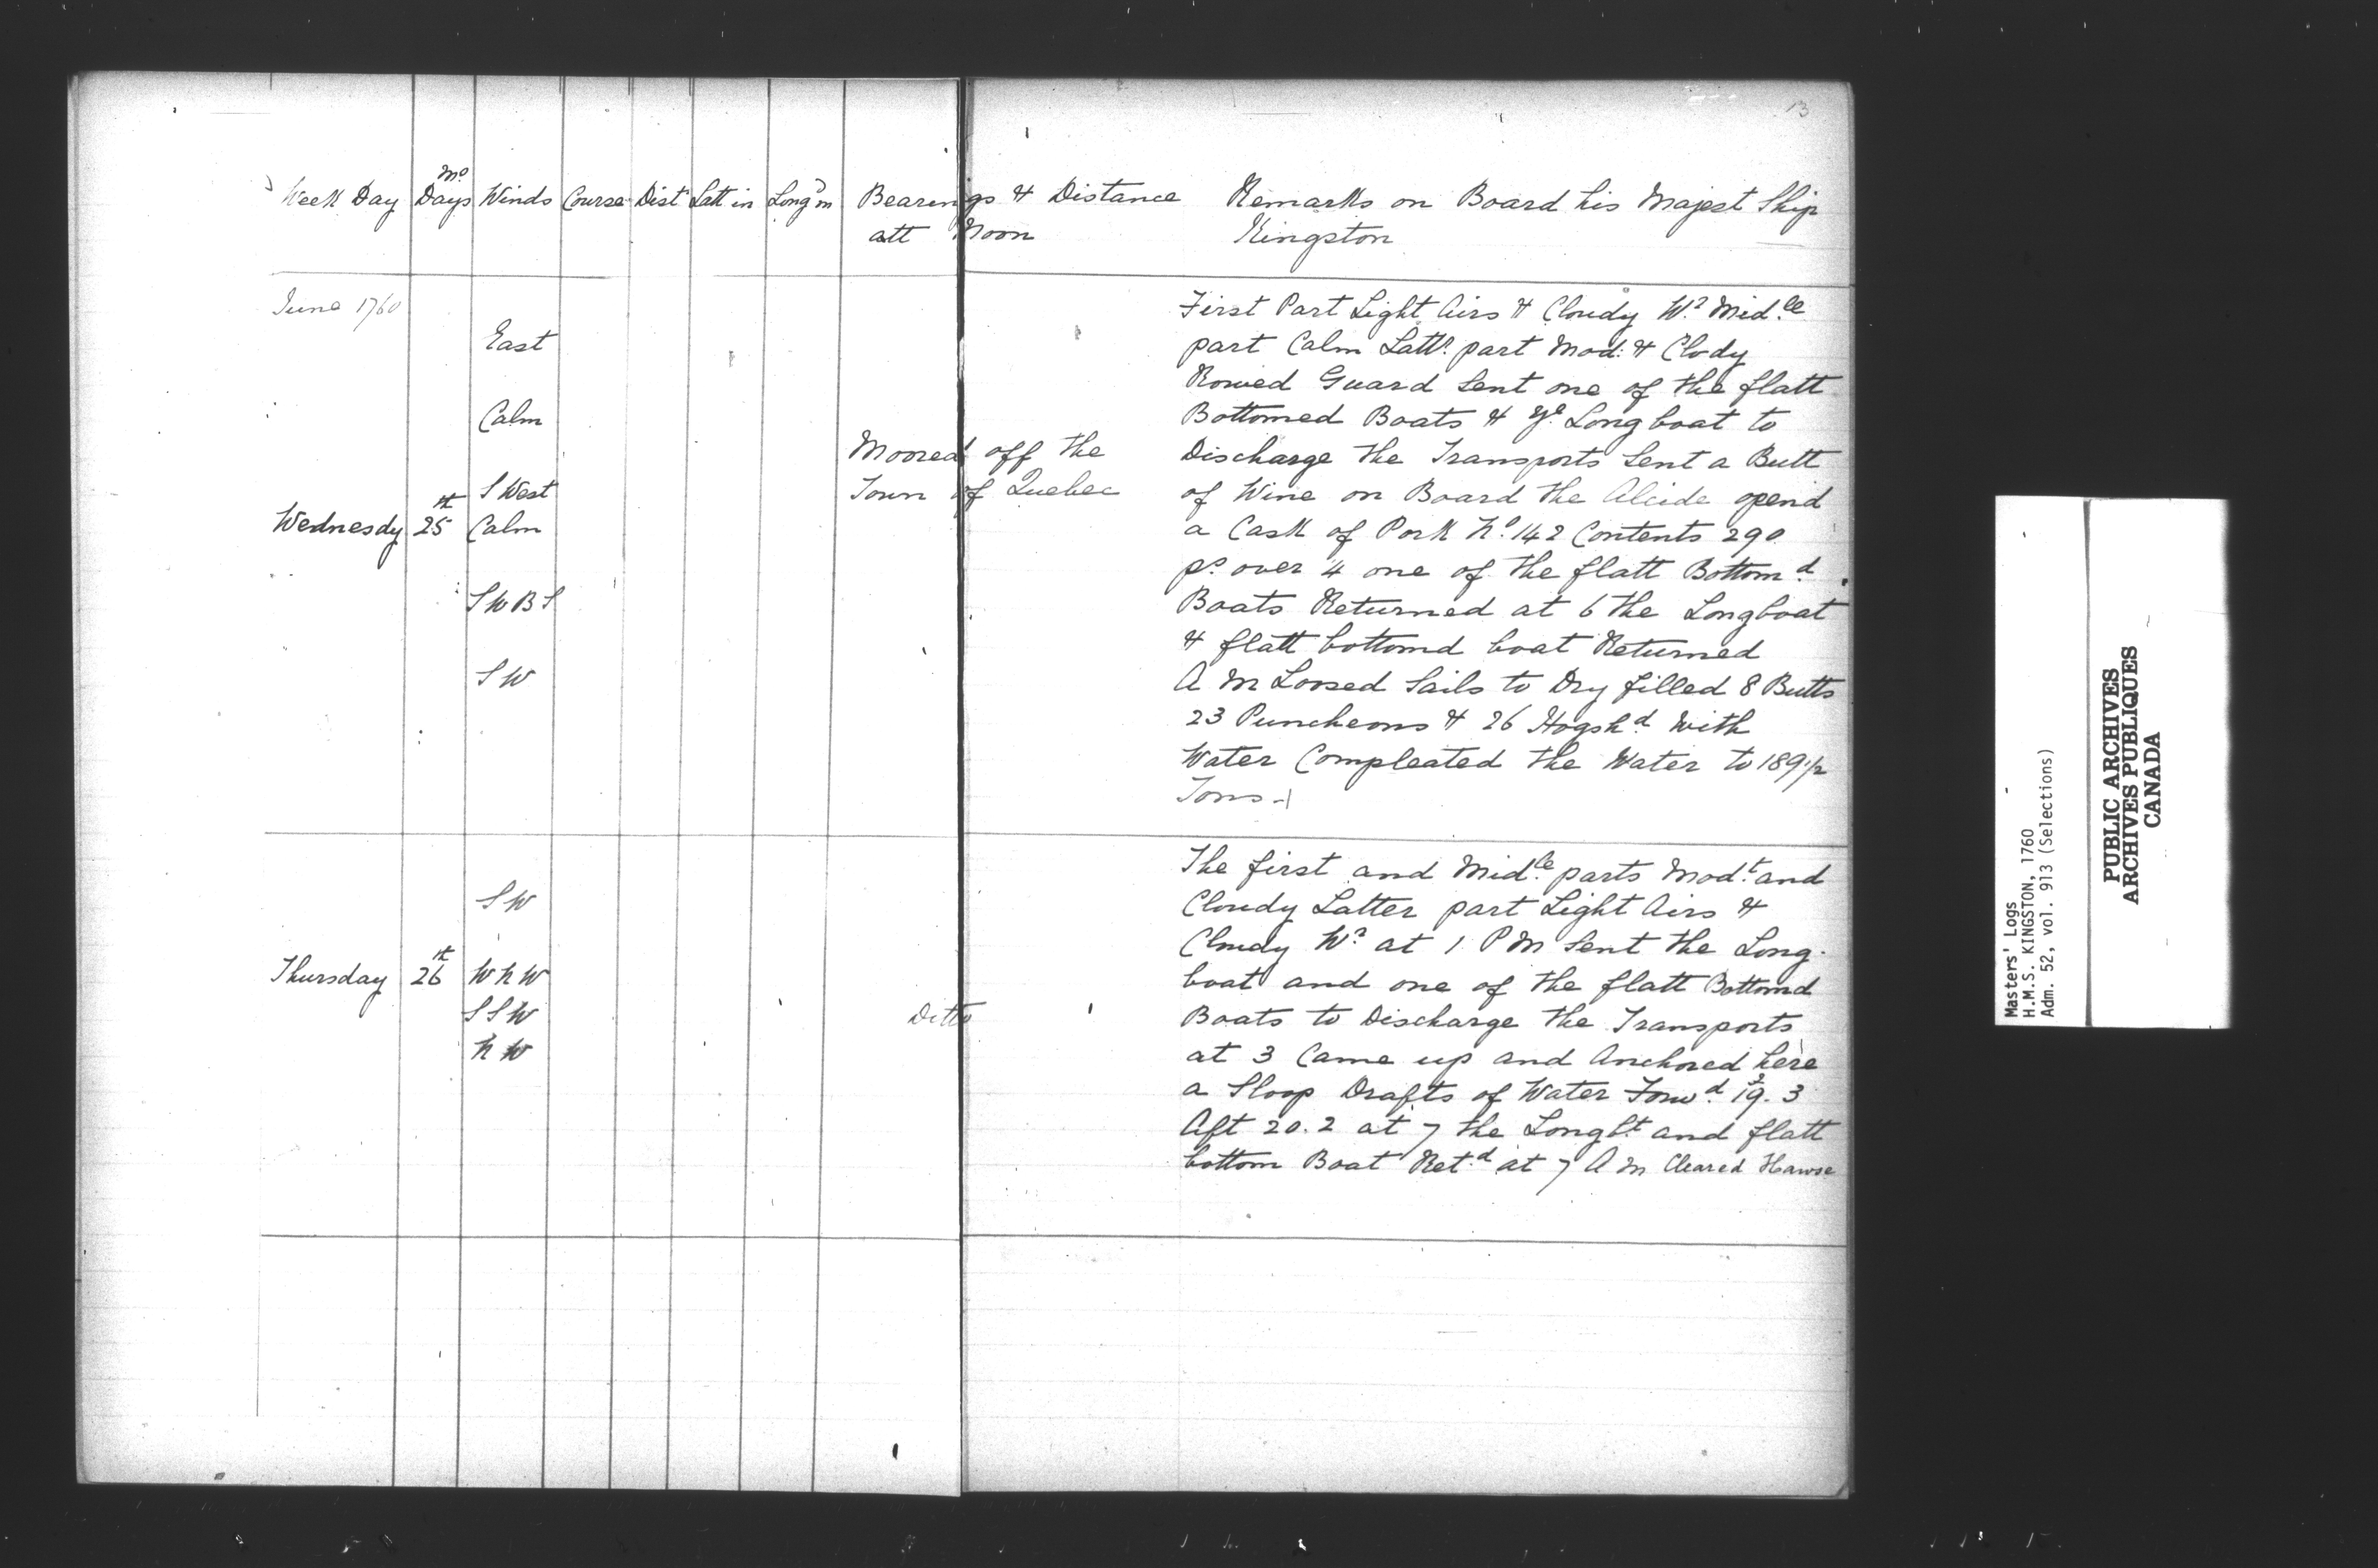 13
Week Day Mo Days Winds Course Dist Latt in Long in Bearings & Distance att Noon Remarks on Board his Majest Ship Kingston
June 1760
East
Calm
S West
Wednesdy 25th Calm
S W B S
S W
Moored off the
Town of Quebec
First Part Light Airs & Cloudy Wr Midle
part Calm Lattr part Mod: & Clody
Rowed Guard Sent one of the flatt
Bottomed Boats & ye Longboat to
Discharge the Transports Sent a Butt
of Wine on Board the Alcide opend
a Cask of Pork No 142 Contents 290
ps over 4 one of the flatt Bottomd
Boats Returned at 6 the Longboat
& flatt bottomd boat Returned
A M Loosed Sails to Dry filled 8 Butts
23 Puncheons & 26 Hogshd With
Water Compleated the Water to 189 1/2
Tons
S W
Thursday 26th W N W
S S W
N W
Ditto
The first and Midle parts Modt and
Cloudy Latter part Light Airs &
Cloudy Wr at 1 P M Sent the Long
boat and one of the flatt Bottomd
Boats to Discharge the Transports
at 3 Came up and Anchored here
a Sloop Drafts of Water Forwd 19.3
Aft 20.2 at 7 the Longbt and flatt
bottom Boat Retd at 7 A M Cleared Hawse
Masters' Logs
H.M.S. KINGSTON, 1760
Adm. 52, vol. 913 (Selections)
PUBLIC ARCHIVES
ARCHIVES PUBLIQUES
CANADA